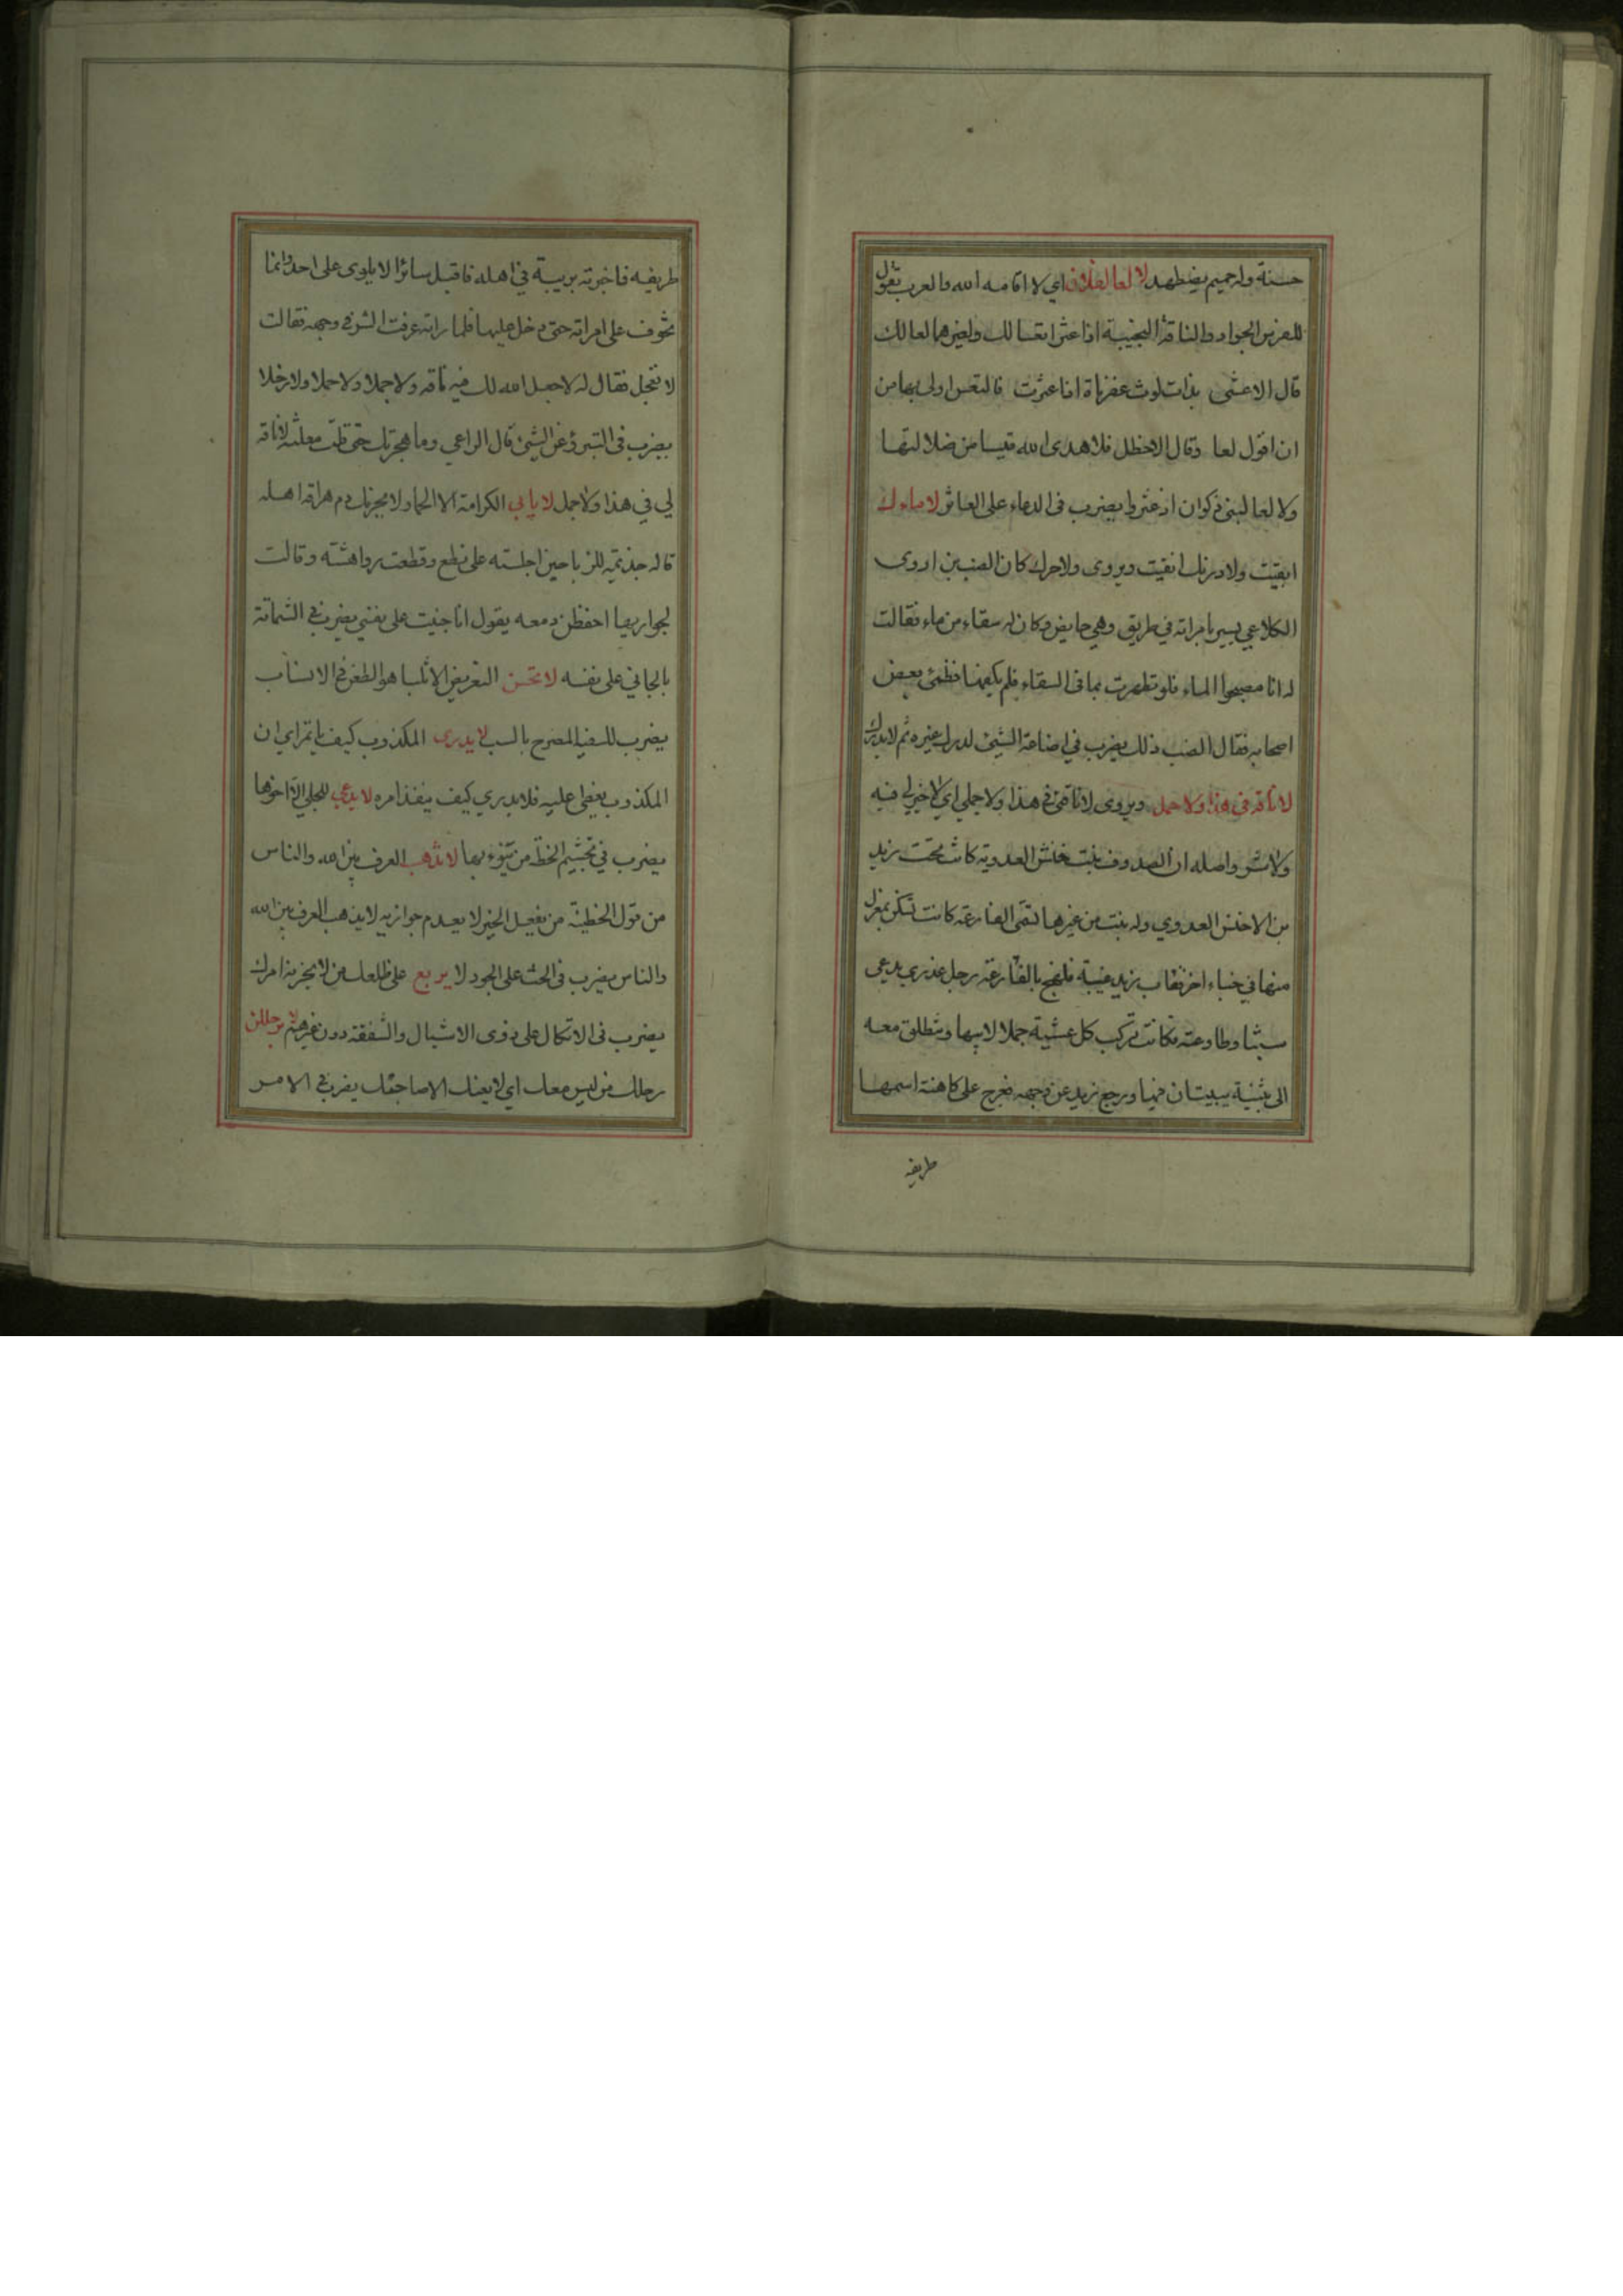 حسنة وله حميم يضطهد لا لعا لفلان اي لا اقامه الله والعرب تقول
للفرس الجواد والناقة النجيبة اذا عثرا تعسا لك ولغيرهما لعا لك
قال الاعشى بذات لوث عفرناة اذا عثرت فالتعس اولى بها من
ان اقول لعا وقال الاخطل فلا هدى الله قيسا من ضلالتها
ولا لعا لبني ذكوان اذ عثروا يضرب في الدعاء على العاثر لا ماءك
ابقيت ولا درنك انقيت ويروى ولا حرك كان الضب بن اروى
الكلاعي يسير بامراته في طريق وهي حايض وكان له سقاء من ماء فقالت
له انا مصبحوا الماء فلو تطهرت بما في السقاء فلم يكفها فظمئ بعض
اصحابه فقال الضب ذلك يضرب في اضاعة الشيئ لدرك غيره ثم لا يدرك
لا ناقه في هذا ولا جمل ويروى لا ناقتي في هذا ولا جملي اي لا خير لي فيه
ولا شر واصله ان الصدوف بنت خنش العدوية كانت تحت زيد
بن الاخنس العدوي وله بنت من غيرها تسمى الفارعة كانت تسكن بمعزل
منها في خباء اخر فغاب زيد غيبة فلهج بالفارعة رجل عذري يدعى
سبثا وطاوعته فكانت تركب كل عشية جملا لابيها وتنطلق معه
الى بثنية يبيتان فيها ورجع زيد عن وجهه فعرج على كاهنة اسمها
طريفه
طريفه فاخبرته بريبة في اهله فاقبل سائرا لا يلوى على احد وانما
تخوف على امراته حتى دخل عليها فلما راته عرفت الشر في وجهه فقالت
لا تعجل فقال له لا جعل الله لك فيه ناقه ولا جملا ولا حملا ولا رخلا
يضرب في التبرؤ عن الشيئ قال الراعي وما هجرتك حتى قلت معلنة لا ناقه
لي في هذا ولا جمل لا يابى الكرامة الا الحمار لا يحزنك دم هراقه اهله
قاله جذيمة للزبا حين اجلسته على نطع وقطعت رواهشه وقالت
لجواريها احفظن دمعه يقول انا جنيت على نفسي يضرب في الشماتة
بالجاني على نفسه لا تحسن التعريض الا ثلبا هو الطعن في الانساب
يضرب للسفيه المصرح بالسب لا يدرى المكذوب كيف ياتمر اي ان
المكذوب يغطى عليه فلا يدري كيف ينفذ امره لا يدعى للجلى الا اخوها
يضرب في تجشيم الخطة من ينوء بها لا يذهب العرف بين الله والناس
من قول الحطيئة من يفعل الخير لا يعدم جوازيه لا يذهب العرف بين الله
والناس يضرب في الحث على الجود لا يربع على ظلعك من لا يحزنه امرك
يضرب في الاتكال على ذوى الاشبال والشفقة دون غيرهم لا يرحلن
رحلك من ليس معك اي لا يعنك الا صاحبك يضرب في الامر